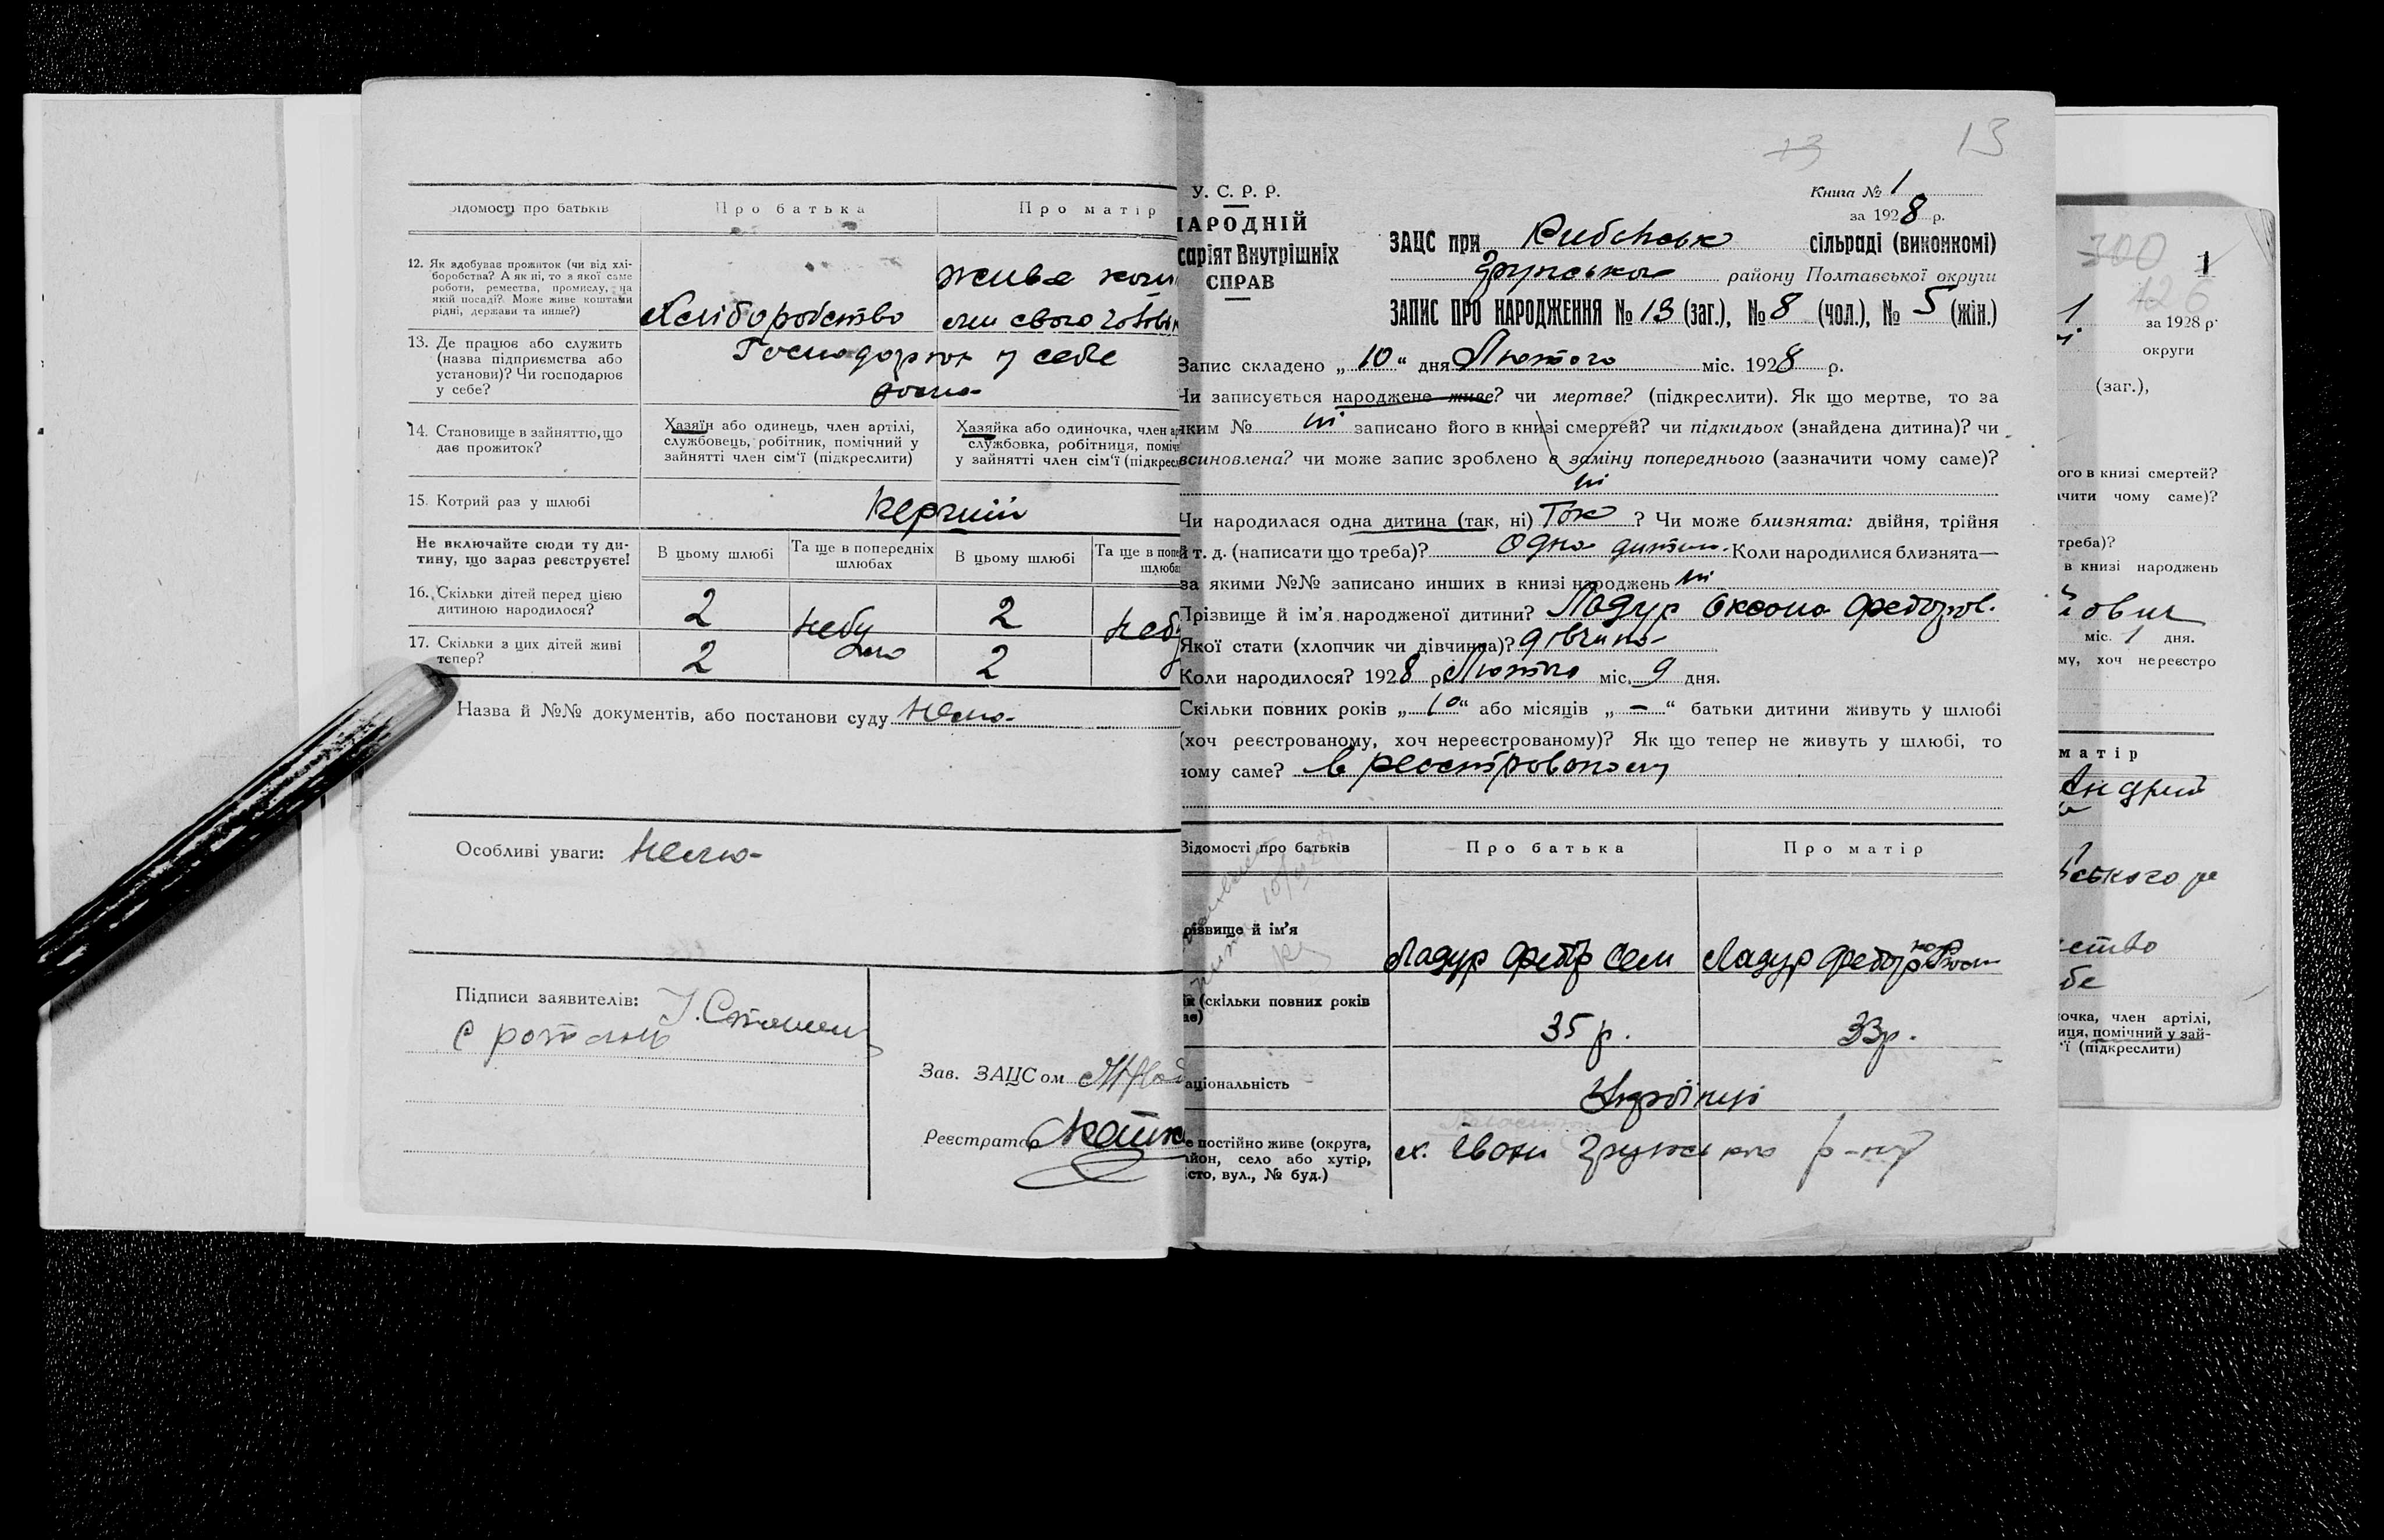 Відомості про батьків
Про батька
Про матір
12. Як здобуває прожиток (чи від хлі-
боробства? А як ні, то з якої саме
роботи, ремества, промислу, на
якій посаді? Може живе коштами
рідні, держави та инше?)
Хліборобство
живе кош
свого чолов
13. Де працює або служить
(назва підприємства або
установи)? Чи господарює
у себе?
у себе
дома
14. Становище в зайняттю, що
дає прожиток?
Хазяїн або одинець, член артілі,
службовець, робітник, помічний у
зайнятті член сім'ї (підкреслити)
Хазяйка або одиночка, член ар
службовка, робітниця, поміч
у зайнятті член сім'ї (підкресл
15. Котрий раз у шлюбі
перший
Не включайте сюди ту ди-
тину, що зараз реєструєте!
В цьому шлюбі
Та ще в попередніх
шлюбах
В цьому шлюбі
Та ще в попе
шлюба
16. Скільки дітей перед цією
дитиною народилося?
2
небу
2
неб
17. Скільки з цих дітей живі
тепер?
2
ло
2
Назва й №№ документів, або постанови суду нема
Особливі уваги: нема
Підписи заявителів:
Зав. ЗАЦСом
Реєстратор
13
13
У. С. Р. Р.
НАРОДНІЙ
саріят Внутрішніх
СПРАВ
Книга № 1
за 1928 р.
ЗАЦС при сільраді (виконкомі)
району Полтавської округи
ЗАПИС ПРО НАРОДЖЕННЯ № 13 (заг.), № 8 (чол.), № 5 (жін.)
Запис складено „ 10 “ дня Лютого міс. 1928 р.
Чи записується народжене живе? чи мертве? (підкреслити). Як що мертве, то за
яким № ні записано його в книзі смертей? чи підкидьок (знайдена дитина)? чи
всиновлена? чи може запис зроблено в заміну попереднього (зазначити чому саме)?
ні
Чи народилася одна дитина (так, ні) Так ? Чи може близнята: двійня, трійня
й т. д. (написати що треба)? Одна дитина. Коли народилися близнята—
за якими №№ записано инших в книзі народжень ні
Прізвище й ім'я народженої дитини? Ладур Оксана Федоров.
Якої стати (хлопчик чи дівчинка)? дівчина
Коли народилося? 1928 р. Лютого міс. 9 дня.
Скільки повних років „ 10 “ або місяців „ – “ батьки дитини живуть у шлюбі
(хоч реєстрованому, хоч нереєстрованому)? Як що тепер не живуть у шлюбі, то
чому саме? в реєстрованому
Відомості про батьків
Про батька
Про матір
різвище й ім'я
Ладур Федір Сем
Ладур
ік (скільки повних років
ає)
35 р.
33 р.
аціональність
Українці
е постійно живе (округа,
айон, село або хутір,
істо, вул., № буд.)
х. Івани р-ну
300
1
126
1
за 1928 р.
округи
(заг.),
ого в книзі смертей?
ачити чому саме)?
треба)?
в книзі народжень
ович
міс. 1 дня.
му, хоч нереєстро
матір
Андрій
ського р
ство
бе
ночка, член артілі,
иця, помічний у зай-
'ї (підкреслити)